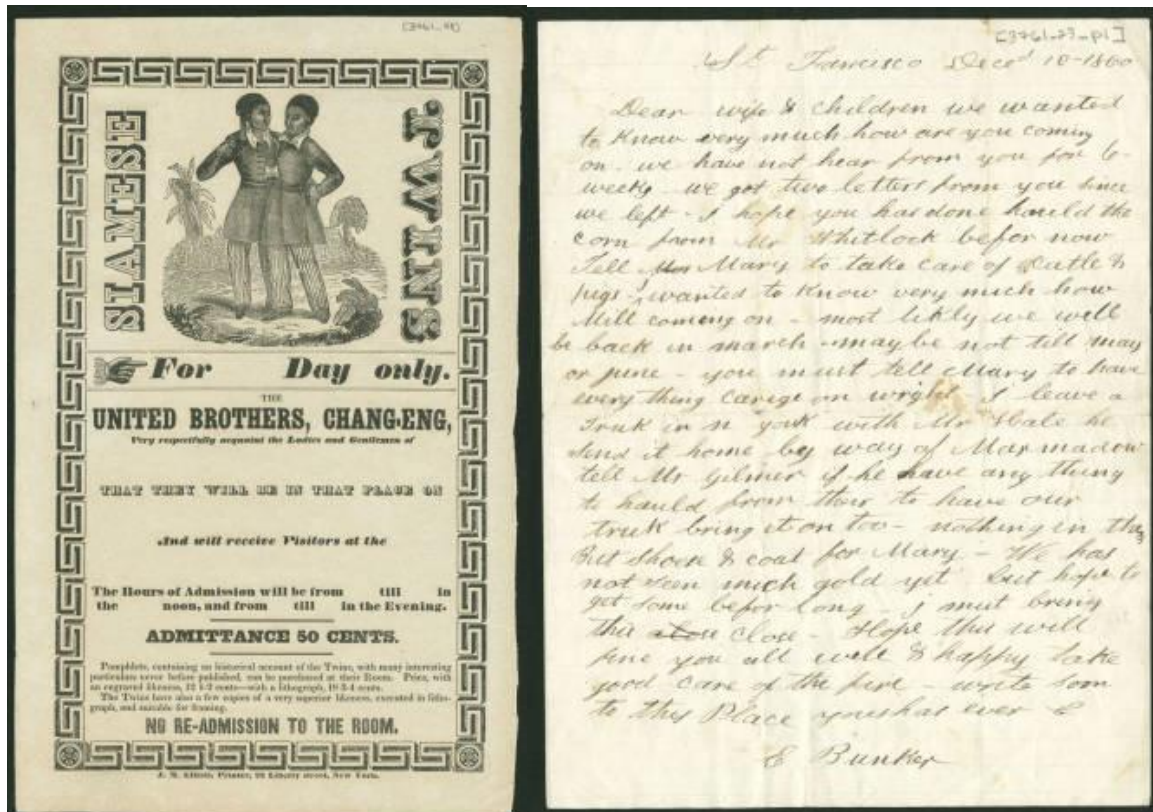 [3761_
SIAMESE
TWINS
For Day only.
THE
UNITED BROTHERS, CHANG-ENG,
Very respectfully acquaint the Ladies and Gentlemen of
THAT THEY WILL BE IN THAT PLACE ON
And will receive Visitors at the
The Hours of Admission will be from till in
the noon, and from till in the Evening.
ADMITTANCE 50 CENTS.
Pamphlets, containing an historical account of the Twins, with many interesting
particulars never before published, can be purchased at their Room. Price, with
an engraved likeness, 12 1-2 cents—with a lithograph, 18 3-4 cents.
The Twins have also a few copies of a very superior likeness, executed in litho-
graph, and suitable for framing.
NO RE-ADMISSION TO THE ROOM.
J. M. Elliott, Printer, Liberty street, New York.
[3761_23_p1]
Francisco 10-1860
Dear wife & children we wanted
to know very much how are you coming
on. we have not hear from you for 6-
weeks we got two letters from you since
we left - I hope you has done hauld the
corn from Mr Whitlock befor now
Tell Mary to take care of Catle &
pigs - I wanted to know very much how
Mill coming on - most likely we will
be back in march - maybe not till may
or june - you must tell Mary to have
every thing on wright - I leave a
Truk in n york with Mr Hale he
send it home by way of
tell Mr Gilmer if he have any thing
to hauld from thier to have our
truk bring it on too - nothing in
But Shoes & coat for Mary - We has
not seen much gold yet but hope to
get some befor long - j must bring
this close - Hope this will
fine you all well & happy take
good care of the fire write soon
to this Place ever
E Bunker